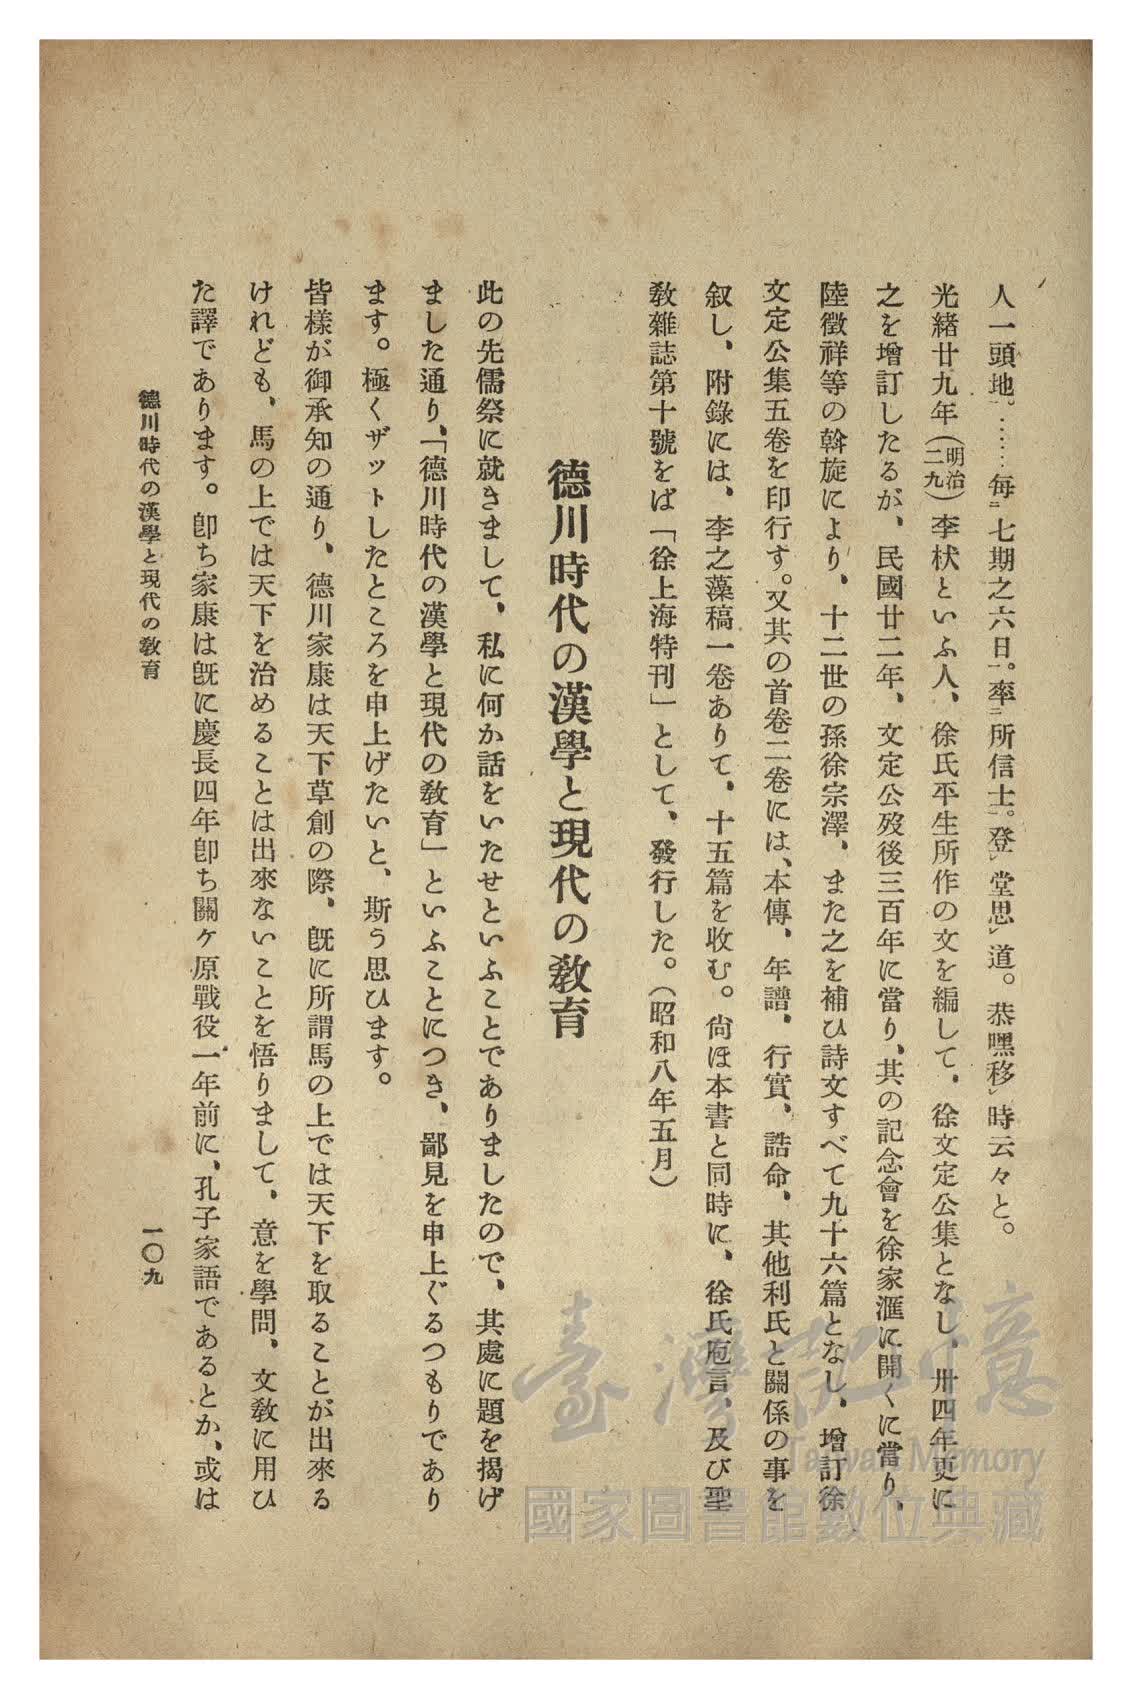 人一頭地。……每㆓七期之六日㆒。率㆓所信士㆒。登㆑堂思㆑道。恭嘿移㆑時云々と。
光緖廿九年（明治二九）李杕といふ人、徐氏平生所作の文を編して、徐文定公集となし、卅四年更に
之を增訂したるが、民國廿二年、文定公歿後三百年に當り、其の記念會を徐家滙に開くに當り、
陸徵祥等の斡旋により、十二世の孫徐宗澤、また之を補ひ詩文すべて九十六篇となし、增訂徐
文定公集五卷を印行す。又其の首卷二卷には、本傳、年譜、行實、誥命、其他利氏と關係の事を
叙し、附錄には、李之藻稿一卷ありて、十五篇を收む。尙ほ本書と同時に、徐氏庖言、及び聖
敎雜誌第十號をば「徐上海特刊」として、發行した。（昭和八年五月）
德川時代の漢學と現代の敎育
此の先儒祭に就きまして、私に何か話をいたせといふことでありましたので、其處に題を揭げ
ました通り、「德川時代の漢學と現代の敎育」といふことにつき、鄙見を申上ぐるつもりであり
ます。極くザットしたところを申上げたいと、斯う思ひます。
皆樣が御承知の通り、德川家康は天下草創の際、旣に所謂馬の上では天下を取ることが出來る
けれども、馬の上では天下を治めることは出來ないことを悟りまして、意を學問、文敎に用ひ
た譯であります。卽ち家康は旣に慶長四年卽ち關ケ原戰役一年前に、孔子家語であるとか、或は
德川時代の漢學と現代の敎育
一〇九
臺灣記憶
Taiwan Memory
國家圖書館數位典藏